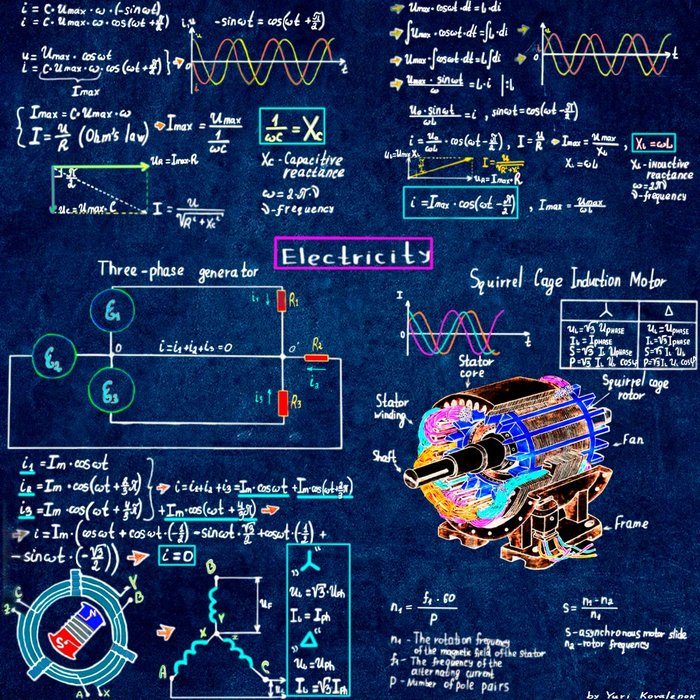 i = C·Umax·ω·(-sinωt)
i = C·Umax·ω·cos(ωt+π/2)
i,u
-sinωt = cos(ωt+π/2)
t
u = Umax·cosωt
i = C·Umax·ω·cos(ωt+π/2)
Imax
Imax = C·Umax·ω
I = U/R (Ohm's law)
Imax = Umax / 1/ωC
1/ωC = Xc
Xc - Capacitive
reactance
ω = 2π·ν
ν - frequency
π/2
UR = Imax·R
Uc = Umax·C
I = U/√R²+Xc²
Umax·cosωt·dt = L·di
∫Umax·cosωt·dt = ∫L·di
Umax·∫cosωt·dt = L∫di
Umax·sinωt/ω = L·i |:L
t
U0·sinωt/ωL = i , sinωt = cos(ωt-π/2)
i = U0/ωL·cos(ωt-π/2), I = U/R
Imax = Umax/XL ,
XL = ωL
UL = Umax·XL
UR = Imax·R
I = U/√R²+XL²
XL = ωL
XL - inductive
reactance
ω = 2πν
ν - frequency
i = Imax·cos(ωt-π/2) , Imax = Umax/ωL
Electricity
Three-phase generator
Ɛ1
Ɛ2
Ɛ3
0
i = i1+i2+i3 = 0
0'
i1
R1
R2
i2
i3
R3
Squirrel Cage Induction Motor
I
t
Y
Δ
UL = √3 UPHASE
IL = IPHASE
S = √3 IL UL
P = √3 IL UL cosφ
UL = UPHASE
IL = √3 IPHASE
S = √3 IL UL
P = √3 IL UL cosφ
Stator
core
Stator
winding
Shaft
Squirrel cage
rotor
Fan
Frame
i1 = Im·cosωt
i2 = Im·cos(ωt+2/3π)
i3 = Im·cos(ωt+4/3π)
i = i1+i2+i3 = Im·cosωt + Im·cos(ωt+2/3π)
+ Im·cos(ωt+4/3π)
i = Im·(cosωt + cosωt·(-1/2) - sinωt·√3/2 + cosωt·(-1/2) +
- sinωt·(-√3/2))
i = 0
Z
C
Y
B
N
S
A
X
B
UF
Y
X
Z
A
C
UL
„Y"
UL = √3·Uph
IL = Iph
„Δ"
UL = Uph
IL = √3·Iph
n1 = f1·60/P
n1 - The rotation frequency
of the magnetic field of the stator
f1 - The frequency of the
alternating current
P - Number of pole pairs
S = n1-n2/n1
S - asynchronous motor slide
n2 - rotor frequency
by Yuri Kovalenok